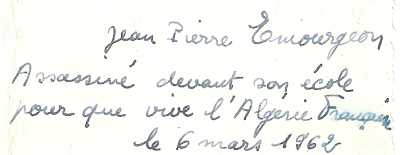 Jean Pierre Emourgeon
Assassiné devant son école
pour que vive l'Algerie Française
le 6 mars 1962